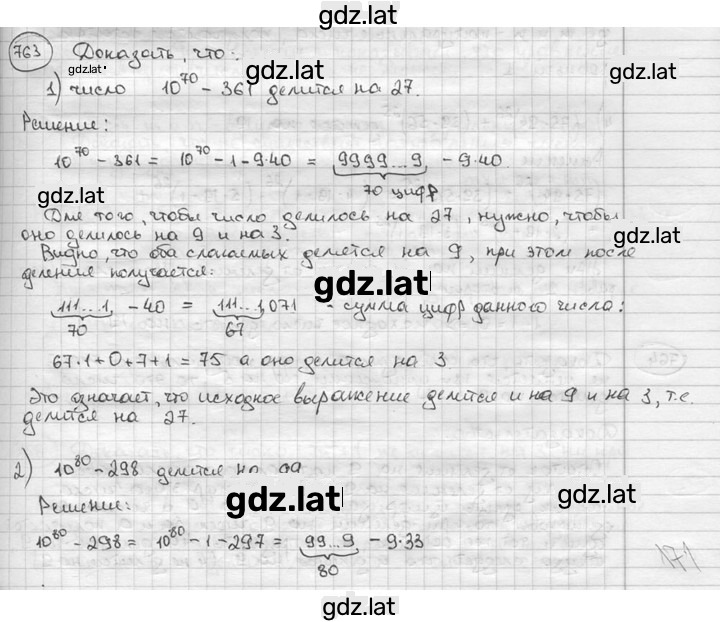 gdz.lat
763 Доказать, что:
gdz.lat
gdz.lat
gdz.lat
1) число 10⁷⁰ - 361 делится на 27.
Решение:
gdz.lat
10⁷⁰ - 361 = 10⁷⁰ - 1 - 9·40 = 9999...9, - 9·40.
70 цифр
gdz.lat
Для того, чтобы число делилось на 27, нужно, чтобы
оно делилось на 9 и на 3.
gdz.lat
Видно, что оба слагаемых делятся на 9, при этом после
деления получается:
gdz.lat
111...1, - 40 = 111...1,071 - сумма цифр данного числа:
70 67
67·1+0+7+1 = 75 а оно делится на 3.
Это означает, что исходное выражение делится и на 9 и на 3, т.е.
делится на 27.
2) 10⁸⁰ - 298 делится на
Решение:
gdz.lat
gdz.lat
10⁸⁰ - 298 = 10⁸⁰ - 1 - 297 = 99...9 - 9·33
80
171
gdz.lat